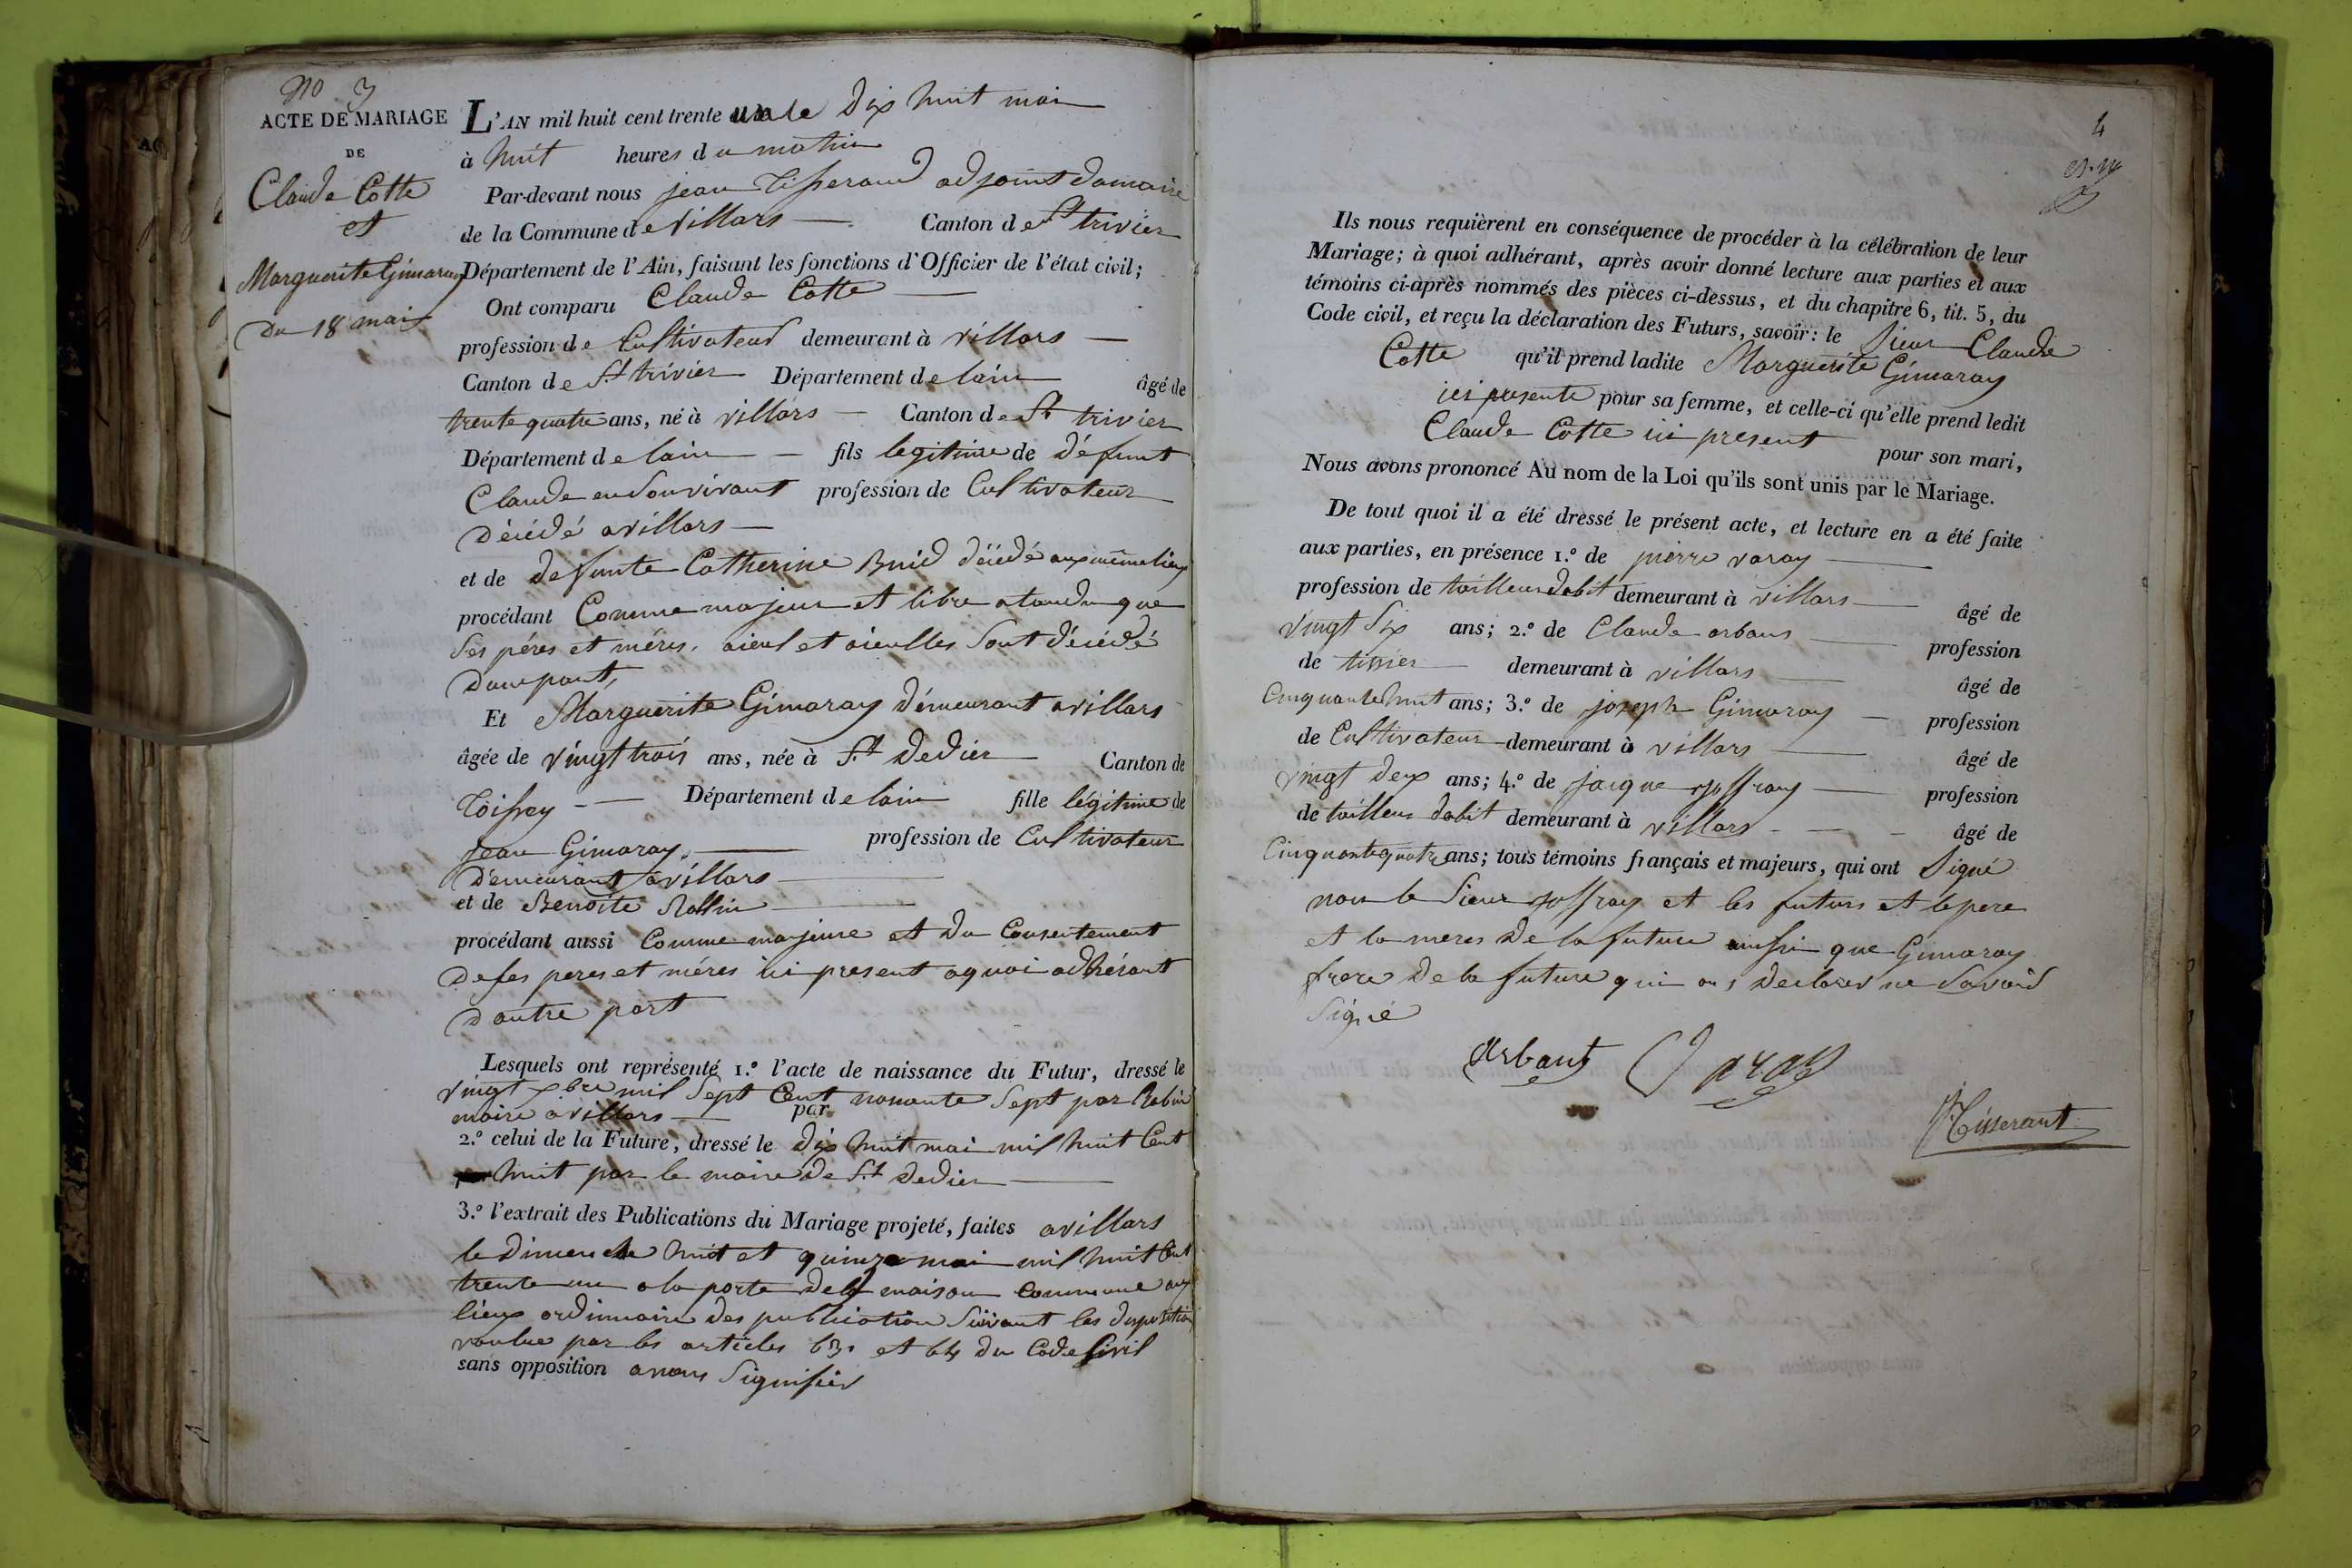 No 3
ACTE DE MARIAGE
DE
Claude Cotte
et
Marguerite Gimaray
Du 18 mai
L'AN mil huit cent trente un le Dix huit mai
à huit heures du matin
Par-devant nous jean Tisserand adjoint Damaire
de la Commune de villars Canton de St trivier
Département de l'Ain, faisant les fonctions d'Officier de l'état civil;
Ont comparu Claude Cotte
profession de Cultivateur demeurant à villars
Canton de St trivier Département de lain âgé de
trente quatre ans, né à villars Canton de St trivier
Département de lain fils legitime de défunt
Claude en Son vivant profession de Cultivateur
Décédé a villars
et de defunte Catherine Buid décédé aux même lieux
procédant Comme majeur et libre atandu que
Ses péres et méres, aieul et aieulles Sont décédé
Dune part,
Et Marguerite Gimaray démeurant a villars
âgée de vingt trois ans, née à St Dedier Canton de
Toissey Département de lain fille légitime de
Jean Gimaray profession de Cultivateur
Démeurant a villars
et de Benoite Rollin
procédant aussi Comme majeure et Du Consentement
De ses peres et méres ici present a quoi adhérant
D'autre part
Lesquels ont représenté 1.º l'acte de naissance du Futur, dressé le
vingt xbre mil Sept Cent nonante Sept par Robin
maire a villars par
2.º celui de la Future, dressé le dix huit mai mil huit Cent
huit par le maire de St Dedier
3.º l'extrait des Publications du Mariage projeté, faites a villars
le dimenche huit et quinze mai mil huit Cent
trente un a la porte de la maison Commune aux
lieux ordinnaire des publication Suivant les disposition
voulue par les articles 63 et 64 du Code Civil
sans opposition a nous Signifier
4
Ils nous requièrent en conséquence de procéder à la célébration de leur
Mariage; à quoi adhérant, après avoir donné lecture aux parties et aux
témoins ci-après nommés des pièces ci-dessus, et du chapitre 6, tit. 5, du
Code civil, et reçu la déclaration des Futurs, savoir: le Sieur Claude
Cotte qu'il prend ladite Marguerite Gimaray
ici presente pour sa femme, et celle-ci qu'elle prend ledit
Claude Cotte ici present pour son mari,
Nous avons prononcé Au nom de la Loi qu'ils sont unis par le Mariage.
De tout quoi il a été dressé le présent acte, et lecture en a été faite
aux parties, en présence 1.º de pierre varay
profession de tailleur dabit demeurant à villars âgé de
vingt Six ans; 2.º de Claude arbans profession
de tissier demeurant à villars âgé de
Cinquante huit ans; 3.º de joseph Gimaray profession
de Cultivateur demeurant à villars âgé de
vingt deux ans; 4.º de jacque joffray profession
de tailleur dabit demeurant à villars âgé de
Cinquante quatre ans; tous témoins français et majeurs, qui ont Signé
non le Sieur joffray et les futurs et le pere
et la meres De la future ainssi que Gimaray
frere De la future qui ons Declarer ne Savoir
Signé
Arbant Varay
Tisserant